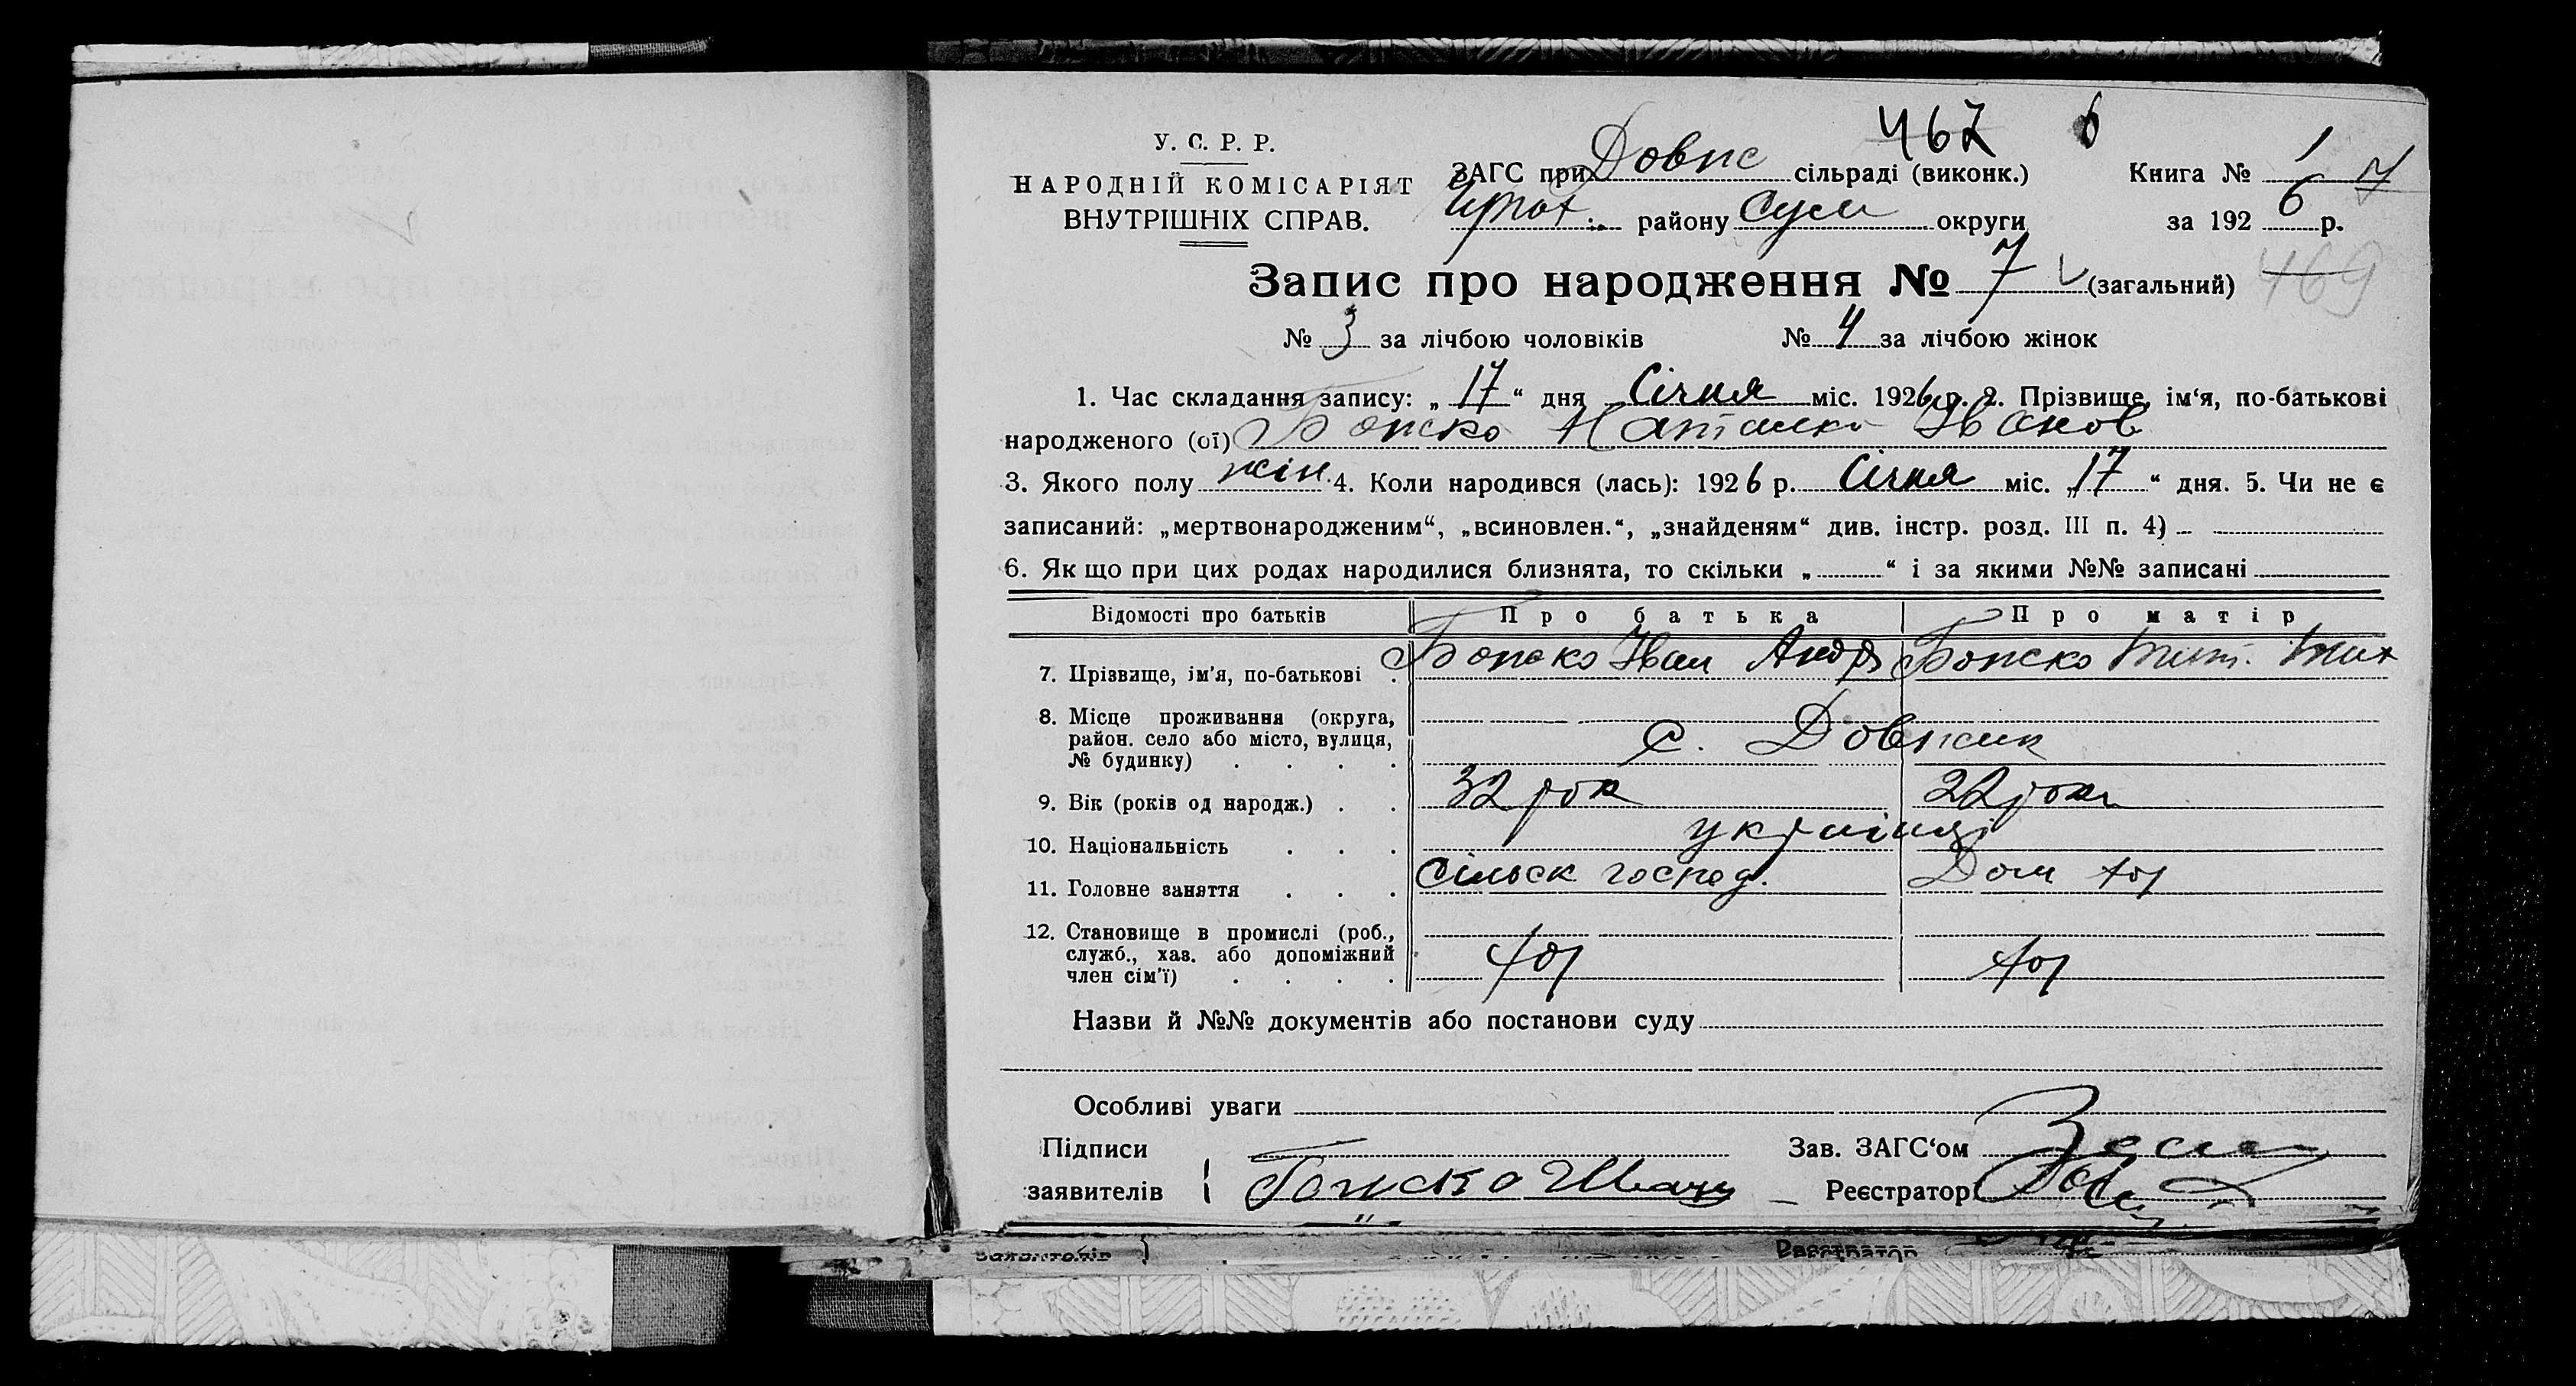 467 6
У. С. Р. Р.
НАРОДНІЙ КОМІСАРІЯТ
ВНУТРІШНІХ СПРАВ.
ЗАГС при Довж сільраді (виконк.) Книга № 1 7
району Сум округи за 192 6 р.
Запис про народження № 7 (загальний) 469
№ 3 за лічбою чоловіків № 4 за лічбою жінок
1. Час складання запису: „ 17 “ дня Січня міс. 1926 р. 2. Прізвище, ім‘я, по-батькові
народженого (ої) Наталка Іванов
3. Якого полу жін. 4. Коли народився (лась): 1926 р. Січня міс. „ 17 “ дня. 5. Чи не є
записаний: „мертвонародженим“, „всиновлен.“, „знайденям“ див. інстр. розд. III п. 4)
6. Як що при цих родах народилися близнята, то скільки „ “ і за якими №№ записані
Відомості про батьків Про батька Про матір
7. Прізвище, ім'я, по-батькові . Иван Андр
8. Місце проживання (округа,
район. село або місто, вулиця,
№ будинку) . . . . с. Довжик
9. Вік (років од народж.) . . 32 рок 22 роки
10. Національність . . . українці
11. Головне заняття . . . Сільск господ. Дом
12. Становище в промислі (роб.,
служб., хаз. або допоміжний
член сім'ї) . . . .
Назви й №№ документів або постанови суду
Особливі уваги
Підписи Зав. ЗАГС‘ом
заявителів Реєстратор
заявителів Реєстратор